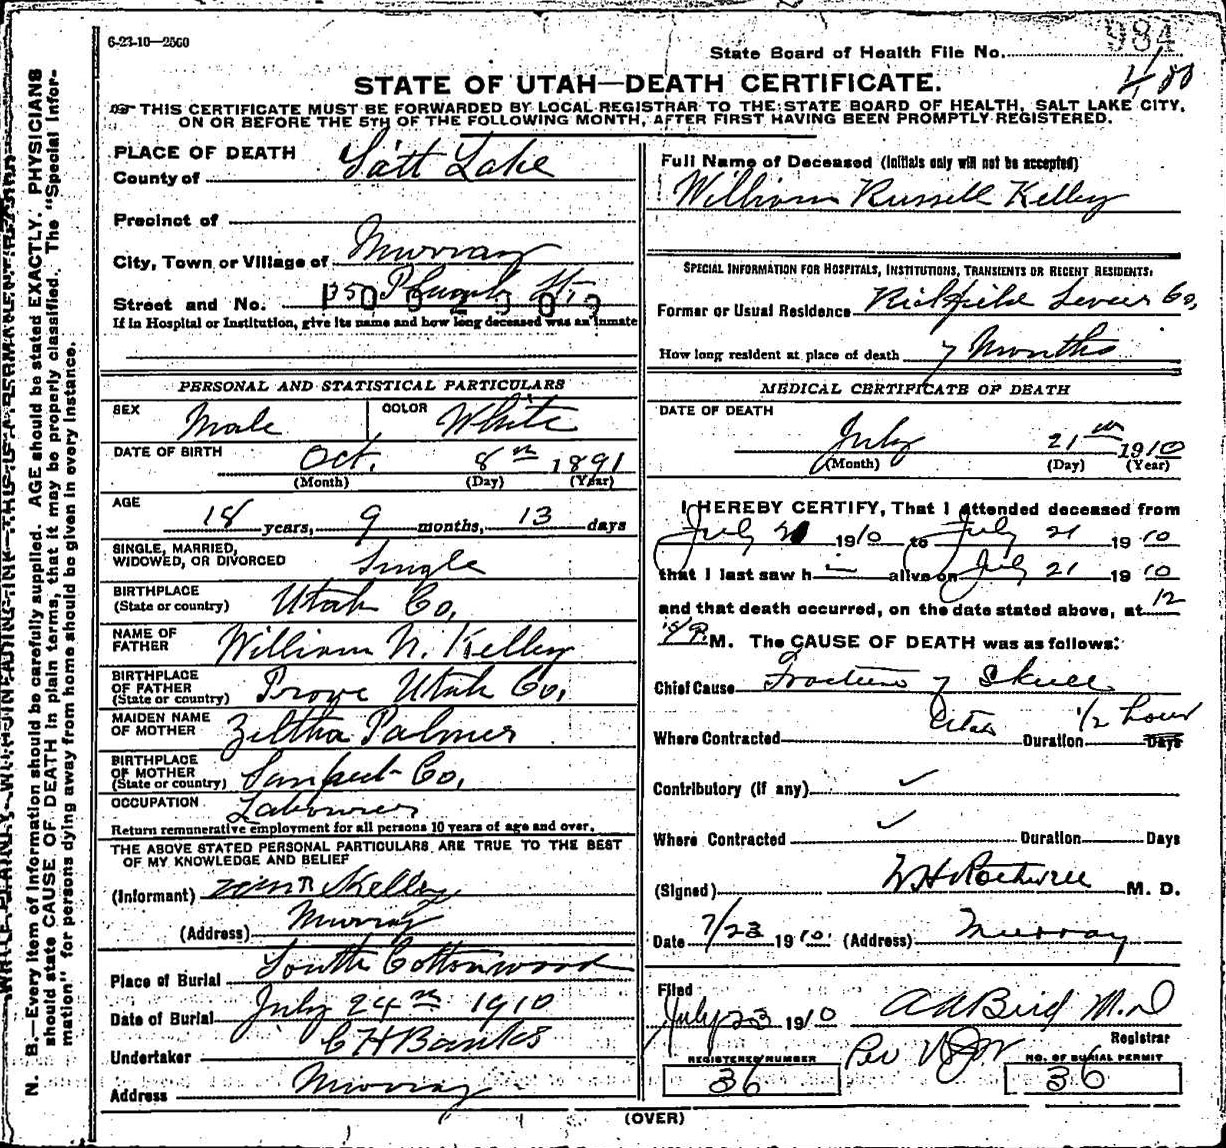 6-23-10—2500
State Board of Health File No. 984
400
STATE OF UTAH—DEATH CERTIFICATE.
THIS CERTIFICATE MUST BE FORWARDED BY LOCAL REGISTRAR TO THE STATE BOARD OF HEALTH, SALT LAKE CITY,
ON OR BEFORE THE 5TH OF THE FOLLOWING MONTH, AFTER FIRST HAVING BEEN PROMPTLY REGISTERED.
WRITE PLAINLY, WITH UNFADING INK—THIS IS A PERMANENT RECORD
N. B.—Every item of information should be carefully supplied. AGE should be stated EXACTLY. PHYSICIANS
should state CAUSE OF DEATH in plain terms, that it may be properly classified. The "Special Infor-
mation" for persons dying away from home should be given in every instance.
PLACE OF DEATH
County of Salt Lake
Precinct of
City, Town or Village of Murray
Street and No. St.
If in Hospital or Institution, give its name and how long deceased was an inmate
PERSONAL AND STATISTICAL PARTICULARS
SEX Male COLOR White
DATE OF BIRTH Oct. 8th 1891
(Month) (Day) (Year)
AGE 18 years, 9 months, 13 days
SINGLE, MARRIED,
WIDOWED, OR DIVORCED Single
BIRTHPLACE
(State or country) Utah Co.
NAME OF
FATHER William N. Kelley
BIRTHPLACE
OF FATHER
(State or country) Provo Utah Co.
MAIDEN NAME
OF MOTHER Zeltha Palmer
BIRTHPLACE
OF MOTHER
(State or country) Sanpete Co.
OCCUPATION Labourer
Return remunerative employment for all persons 10 years of age and over.
THE ABOVE STATED PERSONAL PARTICULARS ARE TRUE TO THE BEST
OF MY KNOWLEDGE AND BELIEF
(Informant) Kelley
(Address) Murray
Place of Burial South Cottonwood
Date of Burial July 24th 1910
Undertaker C H Banks
Address Murray
Full Name of Deceased (Initials only will not be accepted)
William Russell Kelley
SPECIAL INFORMATION FOR HOSPITALS, INSTITUTIONS, TRANSIENTS OR RECENT RESIDENTS:
Former or Usual Residence Richfield Sevier Co,
How long resident at place of death 7 Months
MEDICAL CERTIFICATE OF DEATH
DATE OF DEATH
July 21 1910
(Month) (Day) (Year)
I HEREBY CERTIFY, That I attended deceased from
July 21 1910 to July 21 1910
that I last saw h im alive on July 21 1910
and that death occurred, on the date stated above, at 12
15/P. M. The CAUSE OF DEATH was as follows:
Chief Cause Fracture of Skull
Where Contracted Utah Duration 1/2 hour Days
Contributory (If any) ✓
Where Contracted ✓ Duration Days
(Signed) W H Rothwell M. D.
Date 7/23 1910. (Address) Murray
Filed
July 23 1910 A A Bird M.D
Registrar
Per
REGISTERED NUMBER 36
NO. OF BURIAL PERMIT 36
(OVER)